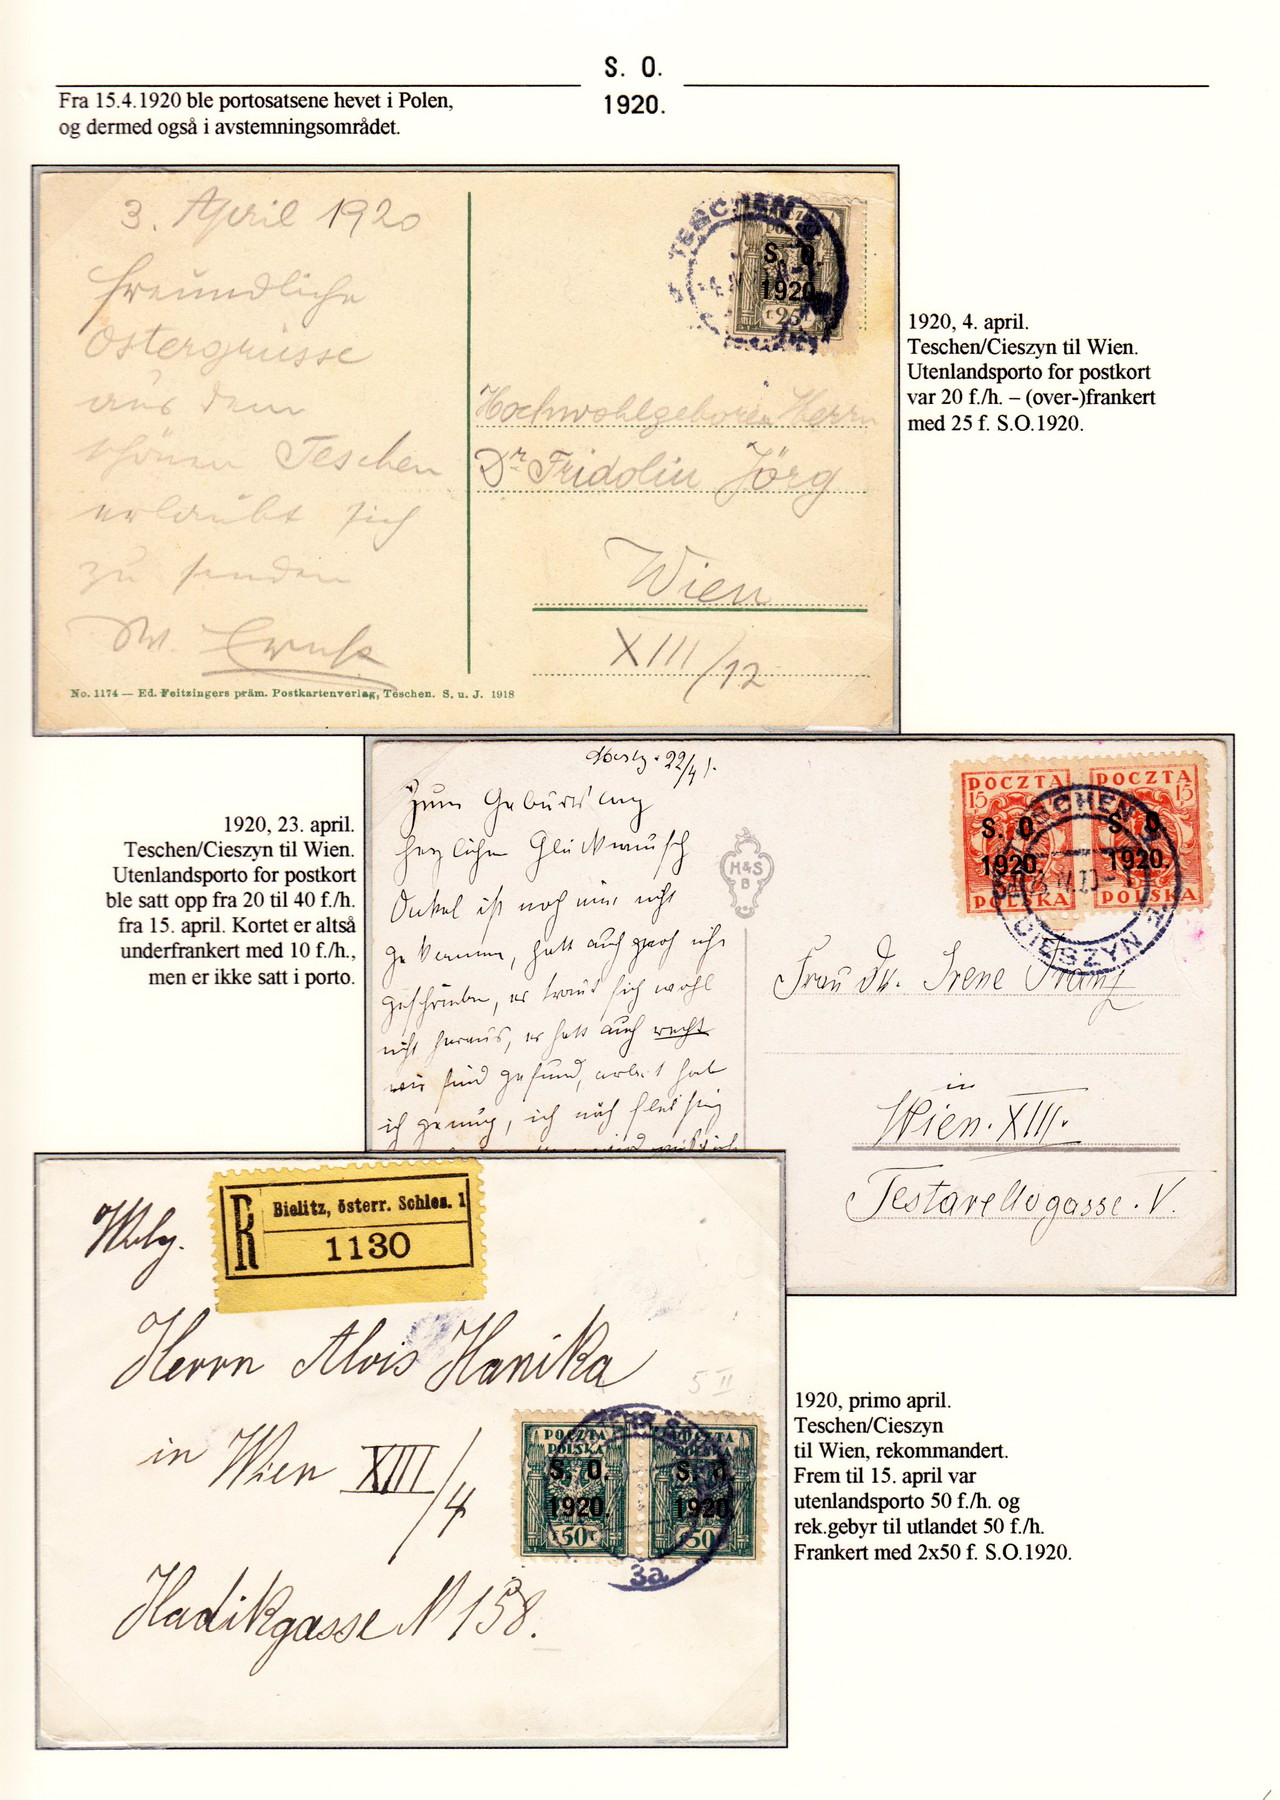 S. O.
1920.
Fra 15.4.1920 ble portosatsene hevet i Polen,
og dermed også i avstemningsområdet.
3. April 1920
Freundliche
Ostergrüsse
aus dem
schönen Teschen
erlaubt sich
zu senden
No. 1174 — Ed. Feitzingers präm. Postkartenverlag, Teschen. S. u. J. 1918
TESCHEN
POCZTA
POLSKA
S. O.
1920.
25
Hochwohlgeboren Herrn
Dr Fridolin Jörg
Wien
XIII/12
1920, 4. april.
Teschen/Cieszyn til Wien.
Utenlandsporto for postkort
var 20 f./h. – (over-)frankert
med 25 f. S.O.1920.
1920, 23. april.
Teschen/Cieszyn til Wien.
Utenlandsporto for postkort
ble satt opp fra 20 til 40 f./h.
fra 15. april. Kortet er altså
underfrankert med 10 f./h.,
men er ikke satt i porto.
22/4
Zum Geburtstag
herzlichen Glückwunsch
Onkel ist noch immer nicht
gekommen, hatt auch noch nicht
geschrieben, er traut sich wohl
nicht heraus, er hatt auch recht
wir sind gesund, arbeit hab
ich genug, ich näh fleissig
M&S
B
POCZTA POCZTA
15 15
S. O. S. O.
1920. 1920.
POLSKA POLSKA
TESCHEN
CIESZYN
Frau Dr. Irene Franz
in
Wien. XIII.
Testarellogasse. V.
R
Bielitz, österr. Schles. 1
1130
Herrn Alois Hanika
in Wien XIII/4
Hadikgasse N 158.
5 II
POCZTA POCZTA
POLSKA POLSKA
S. O. S. O.
1920. 1920.
50 50
3a
1920, primo april.
Teschen/Cieszyn
til Wien, rekommandert.
Frem til 15. april var
utenlandsporto 50 f./h. og
rek.gebyr til utlandet 50 f./h.
Frankert med 2x50 f. S.O.1920.